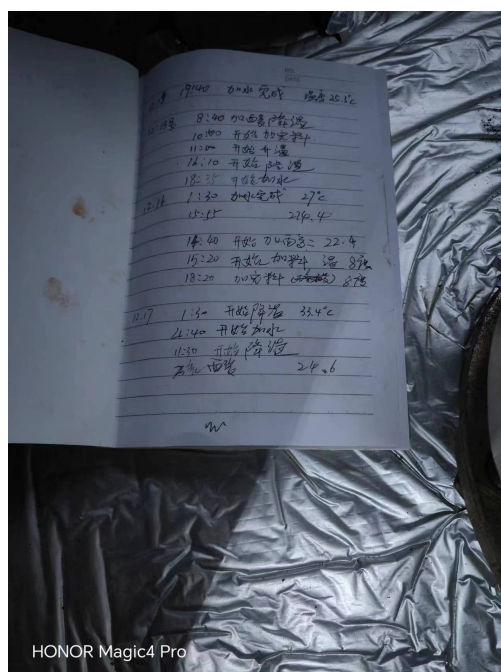 NO.
DATE
19:40 加水完成 温度25.3℃
8:40 加 降温
10:00 开始加 料
11:00 开始升温
16:10 开始降温
18:35 开始加水
12.16 1:30 加水完成 27℃
15:55
14:40 开始加 22.4
15:20 开始加料 温 8度
18:20 加完料 8度
12.17 1:30 开始降温 33.4℃
4:40 开始加水
11:30 开始降温
24.6
HONOR Magic4 Pro